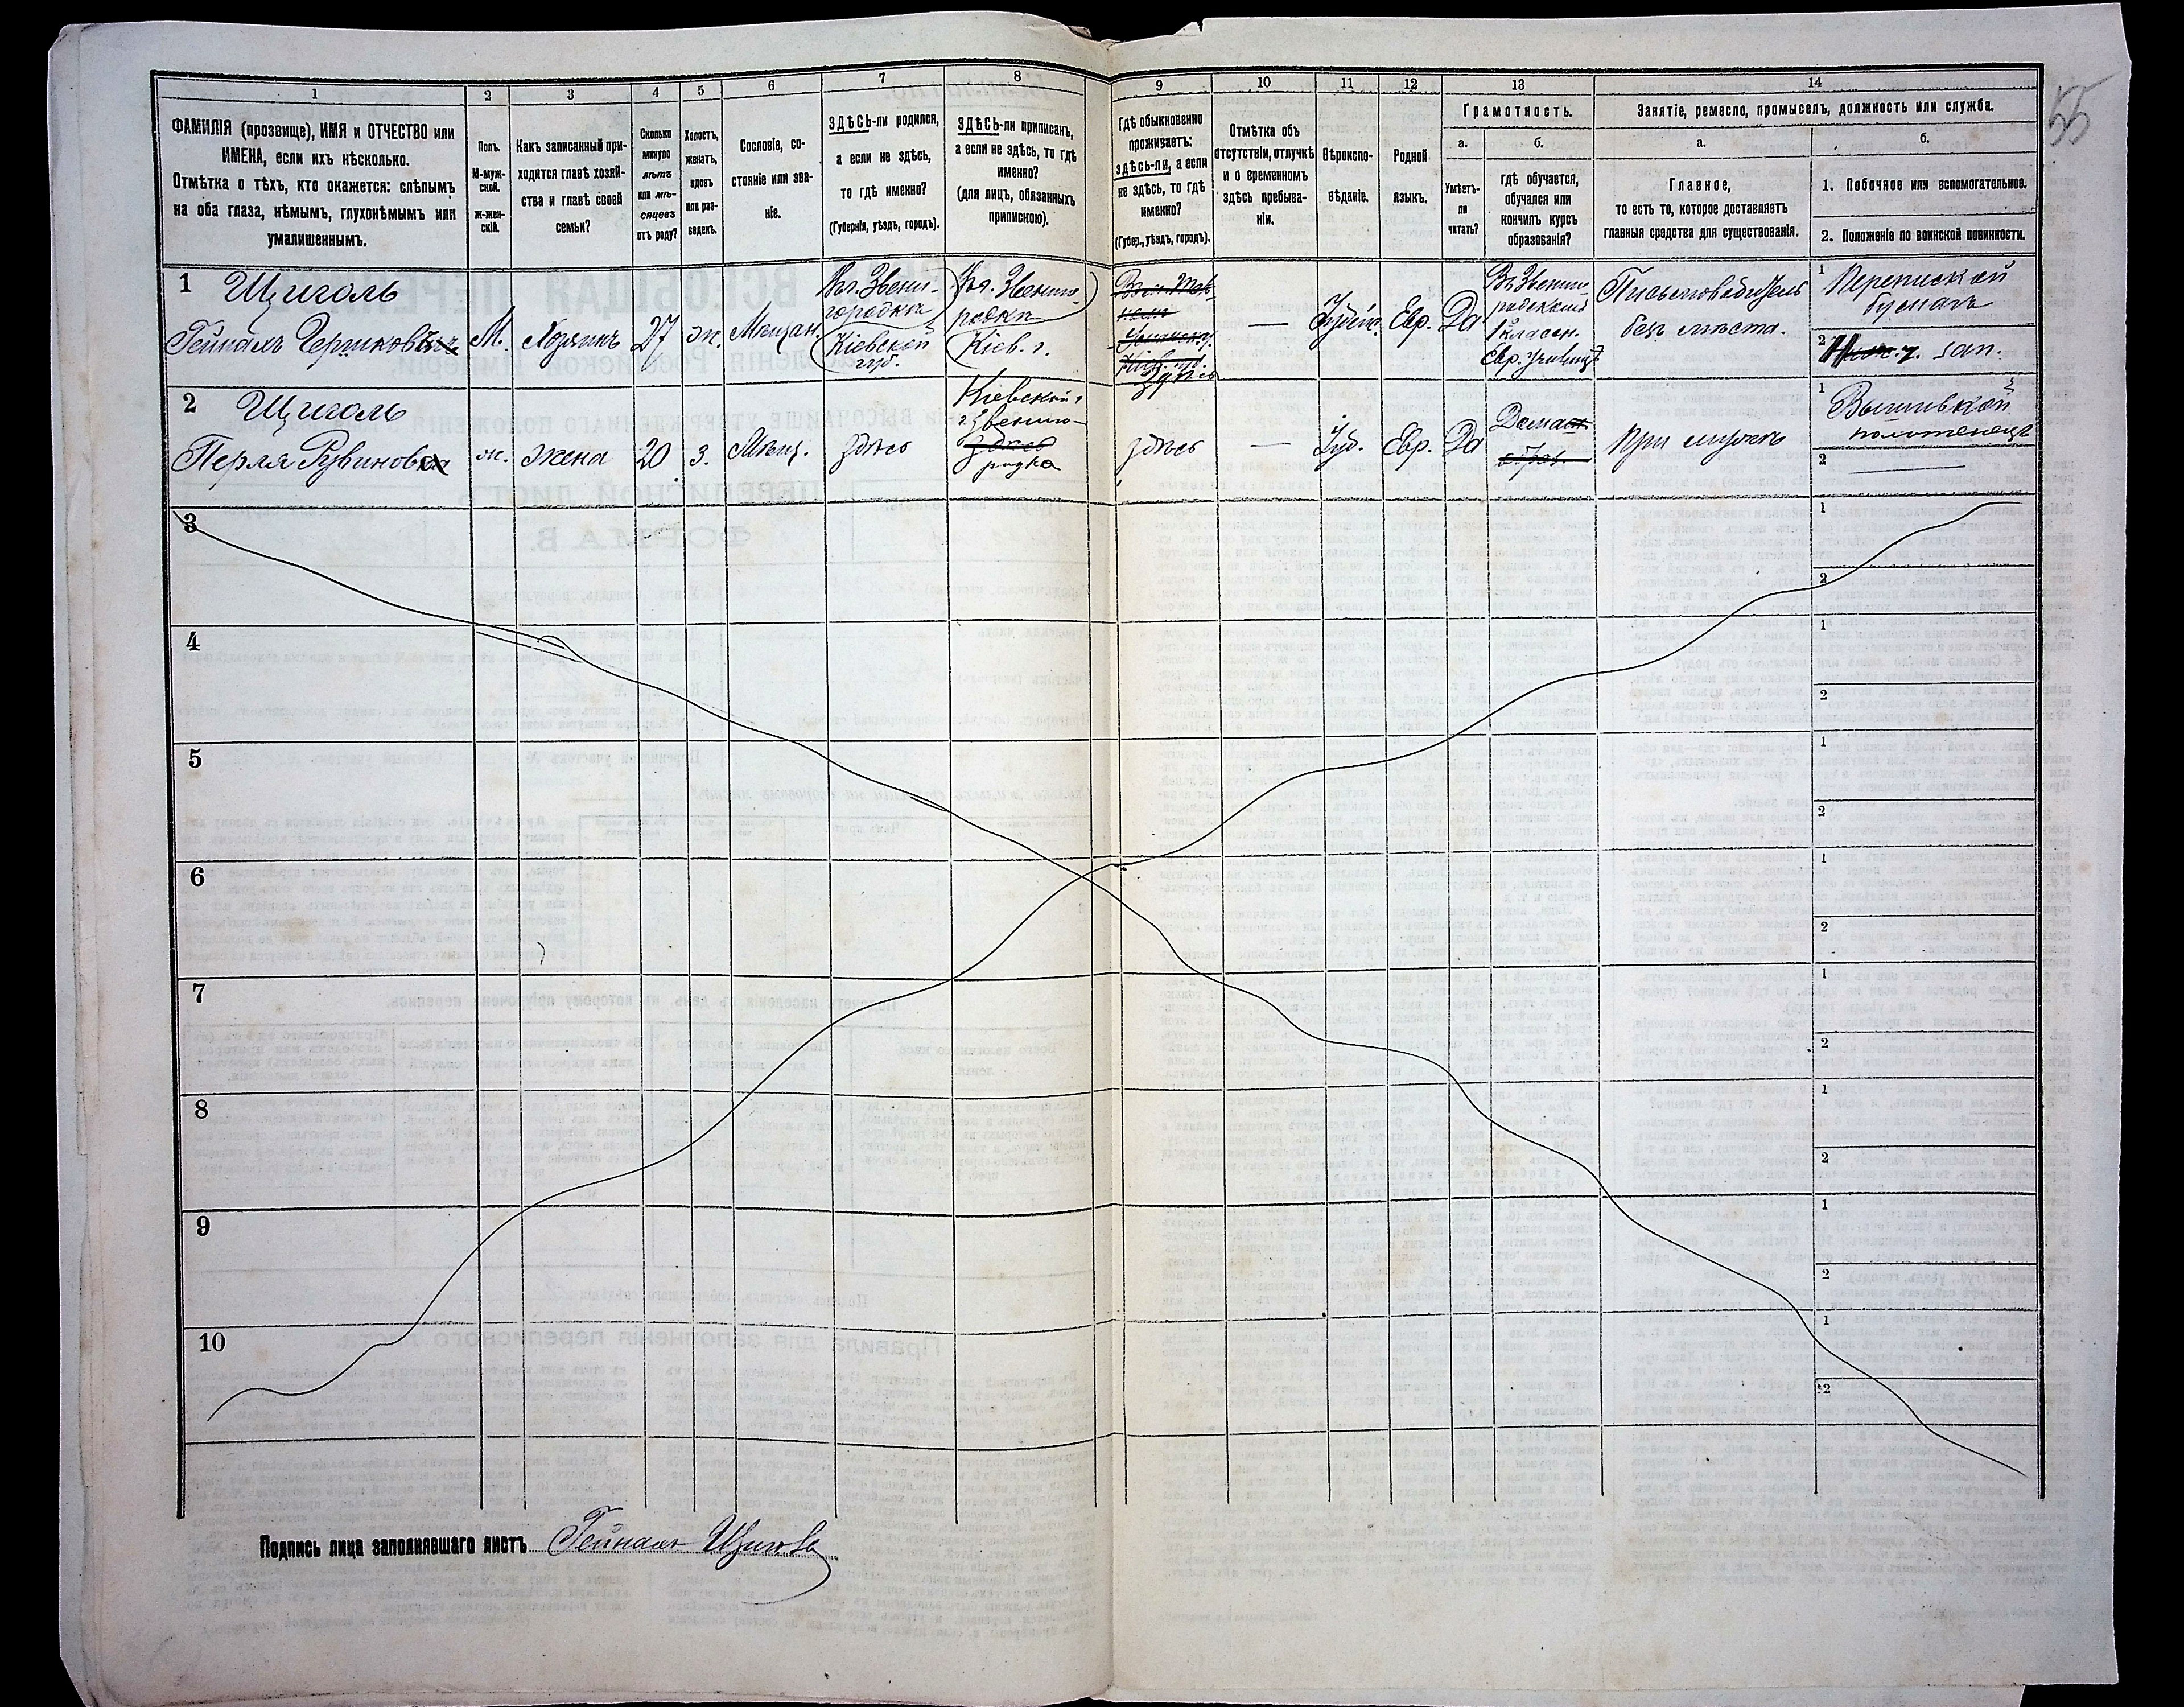 55
1
2
3
4
5
6
7
8
9
10
11
12
13
14
ФАМИЛІЯ (прозвище), ИМЯ и ОТЧЕСТВО или
ИМЕНА, если ихъ нѣсколько.
Отмѣтка о тѣхъ, кто окажется: слѣпымъ
на оба глаза, нѣмымъ, глухонѣмымъ или
умалишеннымъ.
Полъ.
М-муж-
ской.
ж-жен-
скій.
Какъ записанный при-
ходится главѣ хозяй-
ства и главѣ своей
семьи?
Сколько
минуло
лѣтъ
или мѣ-
сяцевъ
отъ роду?
Холостъ,
женатъ,
вдовъ
или раз-
веденъ.
Сословіе, со-
стояніе или зва-
ніе.
ЗДѢСЬ-ли родился,
а если не здѣсь,
то гдѣ именно?
(Губернія, уѣздъ, городъ).
ЗДѢСЬ-ли приписанъ,
а если не здѣсь, то гдѣ
именно?
(для лицъ, обязанныхъ
припискою).
Гдѣ обыкновенно
проживаетъ:
здѣсь-ли, а если
не здѣсь, то гдѣ
именно?
(Губер., уѣздъ, городъ).
Отмѣтка объ
отсутствіи, отлучкѣ
и о временномъ
здѣсь пребыва-
ніи.
Вѣроиспо-
вѣданіе.
Родной
языкъ.
Грамотность.
а.
Умѣетъ-
ли
читать?
б.
гдѣ обучается,
обучался или
кончилъ курсъ
образованія?
Занятіе, ремесло, промыселъ, должность или служба.
а.
Главное,
то есть то, которое доставляетъ
главныя средства для существованія.
б.
1. Побочное или вспомогательное.
2. Положеніе по воинской повинности.
1
Щиголь
Гейнахъ Гершковъ
М.
Хозяинъ
27
ж.
Мѣщан.
Звени-
городка
Кіевской
губ.
Звенино-
родка
Кіев. г.
Здѣсь
—
Іудейс.
Евр.
Да
Въ Звени-
родской
1 класен.
Евр. училищ
Письмоводитель
безъ мѣста.
1
Перепиской
бумагъ
2
зап.
2
Щиголь
Перля Рувинова
ж.
жена
20
з.
Мѣщ.
здѣсь
Кіевской г
г. Звенино-
здѣсь
родка
здѣсь
—
Іуд.
Евр.
Да
Дома
При мужѣ
1
Вышивкой
полотенецъ
2
3
1
2
4
1
2
5
1
2
6
1
2
7
1
2
8
1
2
9
1
2
10
1
2
Подпись лица заполнявшаго листъ Гейнахъ Щиголь